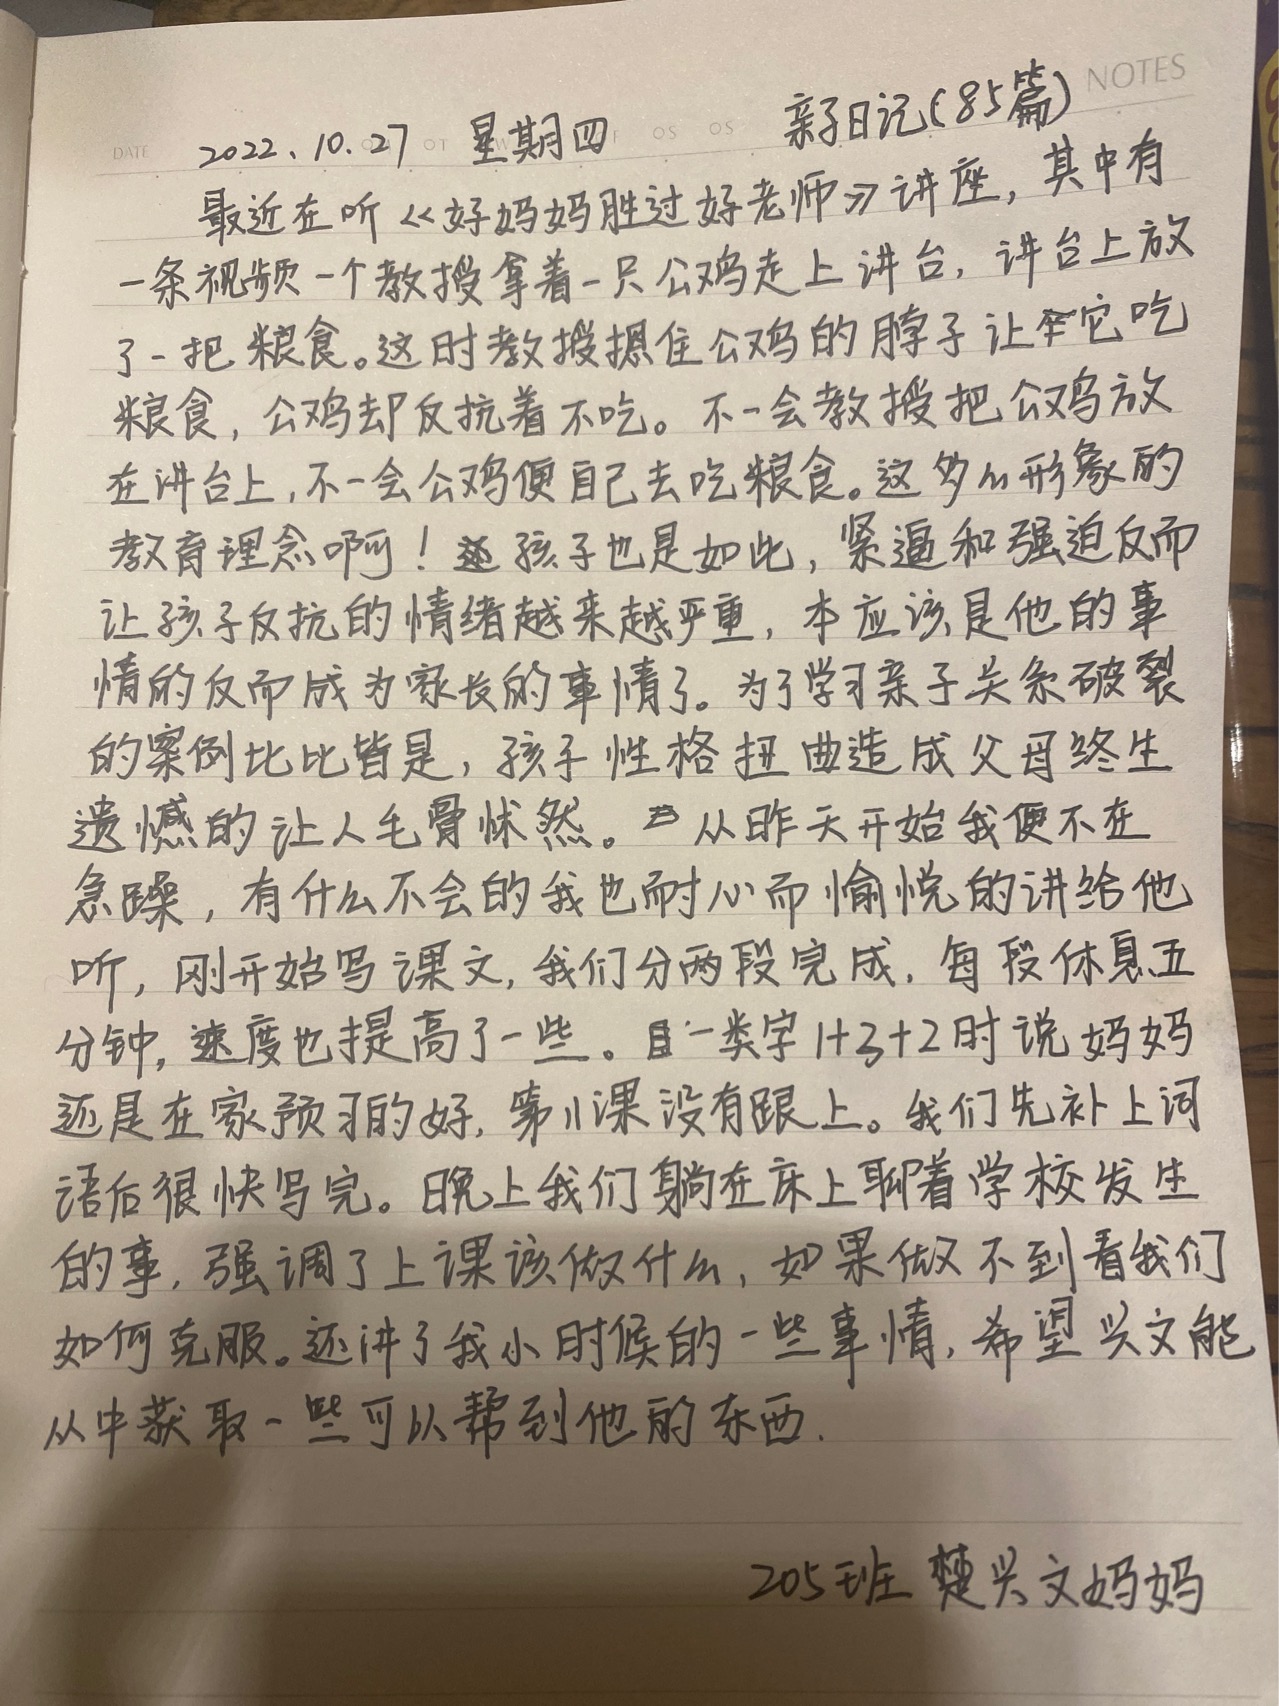 NOTES
亲子日记(85篇)
DATE 2022.10.27 星期四
最近在听《好妈妈胜过好老师》讲座，其中有
一条视频一个教授拿着一只公鸡走上讲台，讲台上放
了一把粮食。这时教授摁住公鸡的脖子让它吃
粮食，公鸡却反抗着不吃。不一会教授把公鸡放
在讲台上，不一会公鸡便自己去吃粮食。这多么形象的
教育理念啊！孩子也是如此，紧逼和强迫反而
让孩子反抗的情绪越来越严重，本应该是他的事
情的反而成为家长的事情了。为了学习亲子关系破裂
的案例比比皆是，孩子性格扭曲造成父母终生
遗憾的让人毛骨怵然。从昨天开始我便不在
急躁，有什么不会的我也耐心而愉悦的讲给他
听，刚开始写课文，我们分两段完成，每段休息五
分钟，速度也提高了一些。一类字1+3+2时说妈妈
还是在家预习的好，第11课没有跟上。我们先补上词
语后很快写完。晚上我们躺在床上聊着学校发生
的事，强调了上课该做什么，如果做不到看我们
如何克服。还讲了我小时候的一些事情，希望兴文能
从中获取一些可以帮到他的东西.
205班 楚兴文妈妈